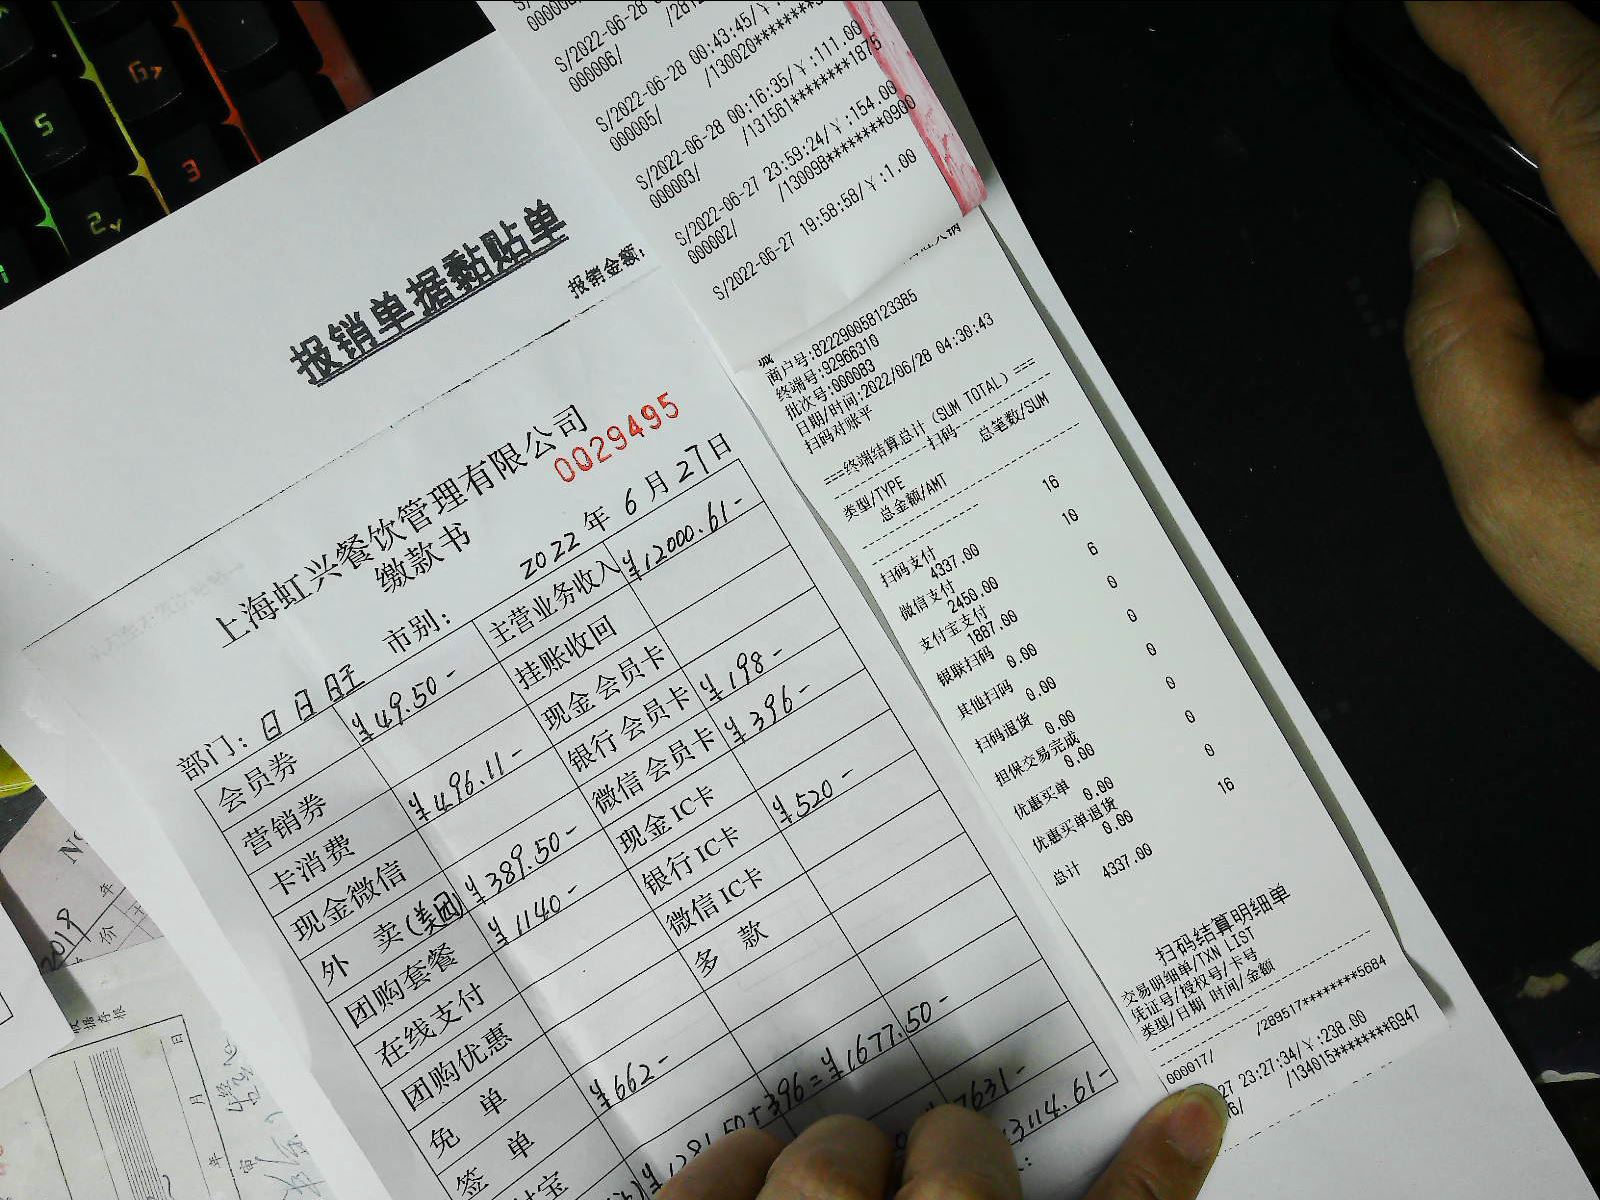 S/2022-06-28
000006/
S/2022-06-28 00:43:45/￥
000005/ /130020*******
S/2022-06-28 00:16:35/￥:111.00
000003/ /131561********1875
S/2022-06-27 23:59:24/￥:154.00
000002/ /130098********0900
S/2022-06-27 19:58:58/￥:1.00
报销单据黏贴单
报销金额:
上海虹兴餐饮管理有限公司
0029495
缴款书
2022年6月27日
部门: 日日旺 市别:
会员券 ￥49.50- 主营业务收入 ￥12000.61-
营销券 挂账收回
卡消费 ￥496.11- 现金会员卡
现金微信 银行会员卡 ￥198-
外 卖(美团) ￥389.50- 微信会员卡 ￥396-
团购套餐 ￥1140- 现金IC卡
在线支付 银行IC卡 ￥520-
团购优惠 微信IC卡
免 单 多 款
签 单 ￥662-
￥1281.50+396=￥1677.50-
7631-
3114.61-
商户号:822290058123385
终端号:92966310
批次号:000083
日期/时间:2022/06/28 04:30:43
扫码对账平
===终端结算总计(SUM TOTAL)===
扫码
类型/TYPE 总笔数/SUM
总金额/AMT
扫码支付 16
4337.00
微信支付 10
2450.00
支付宝支付 6
1887.00
银联扫码 0
0.00
其他扫码 0
0.00
扫码退货 0
0.00
担保交易完成 0
0.00
优惠买单 0
0.00
优惠买单退货 0
0.00
总计 16
4337.00
扫码结算明细单
交易明细单/TXN LIST
凭证号/授权号/卡号
类型/日期 时间/金额
000017/ /289517********5684
27 23:27:34/￥:238.00
6/ /134015********6947
2019
年
价
月
日
年
5
G
3
2